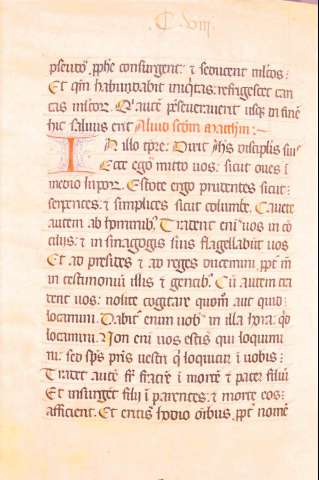 C. xviij
pseudo pphe consurgent: & seducent mltos:
Et qm habundabit iniqtas: refrigescet cari
tas mltor. Qi aute pseuerauerit usq in fine
hic saluus erit Aliud scdm matthm:—
In illo tpre: Dixit Jhs discipulis suis
Ecce ego mitto uos: sicut oues i
medio lupor. Estote ergo prudentes sicut
serpentes: & simplices sicut columbe. Cauete
autem ab hominib. Tradent eni uos in co
cilijs: & in sinagogis suis flagellabut uos
Et ad presides & ad reges ducemini ppt m
in testimoniu illis & gentib. Cu autem tra
dent uos: nolite cogitare quom aut quid
loqamini. Dabit enim uob in illa hora: qd
loqamini. Non eni uos estis qui loquimi
ni: sed sps pris uestri q loquitur i uobis:
Tradet aute fr fratre i morte & pater filiu
Et insurget filij i parentes: & morte eos
afficient. Et eritis hodio oibus, ppt nome